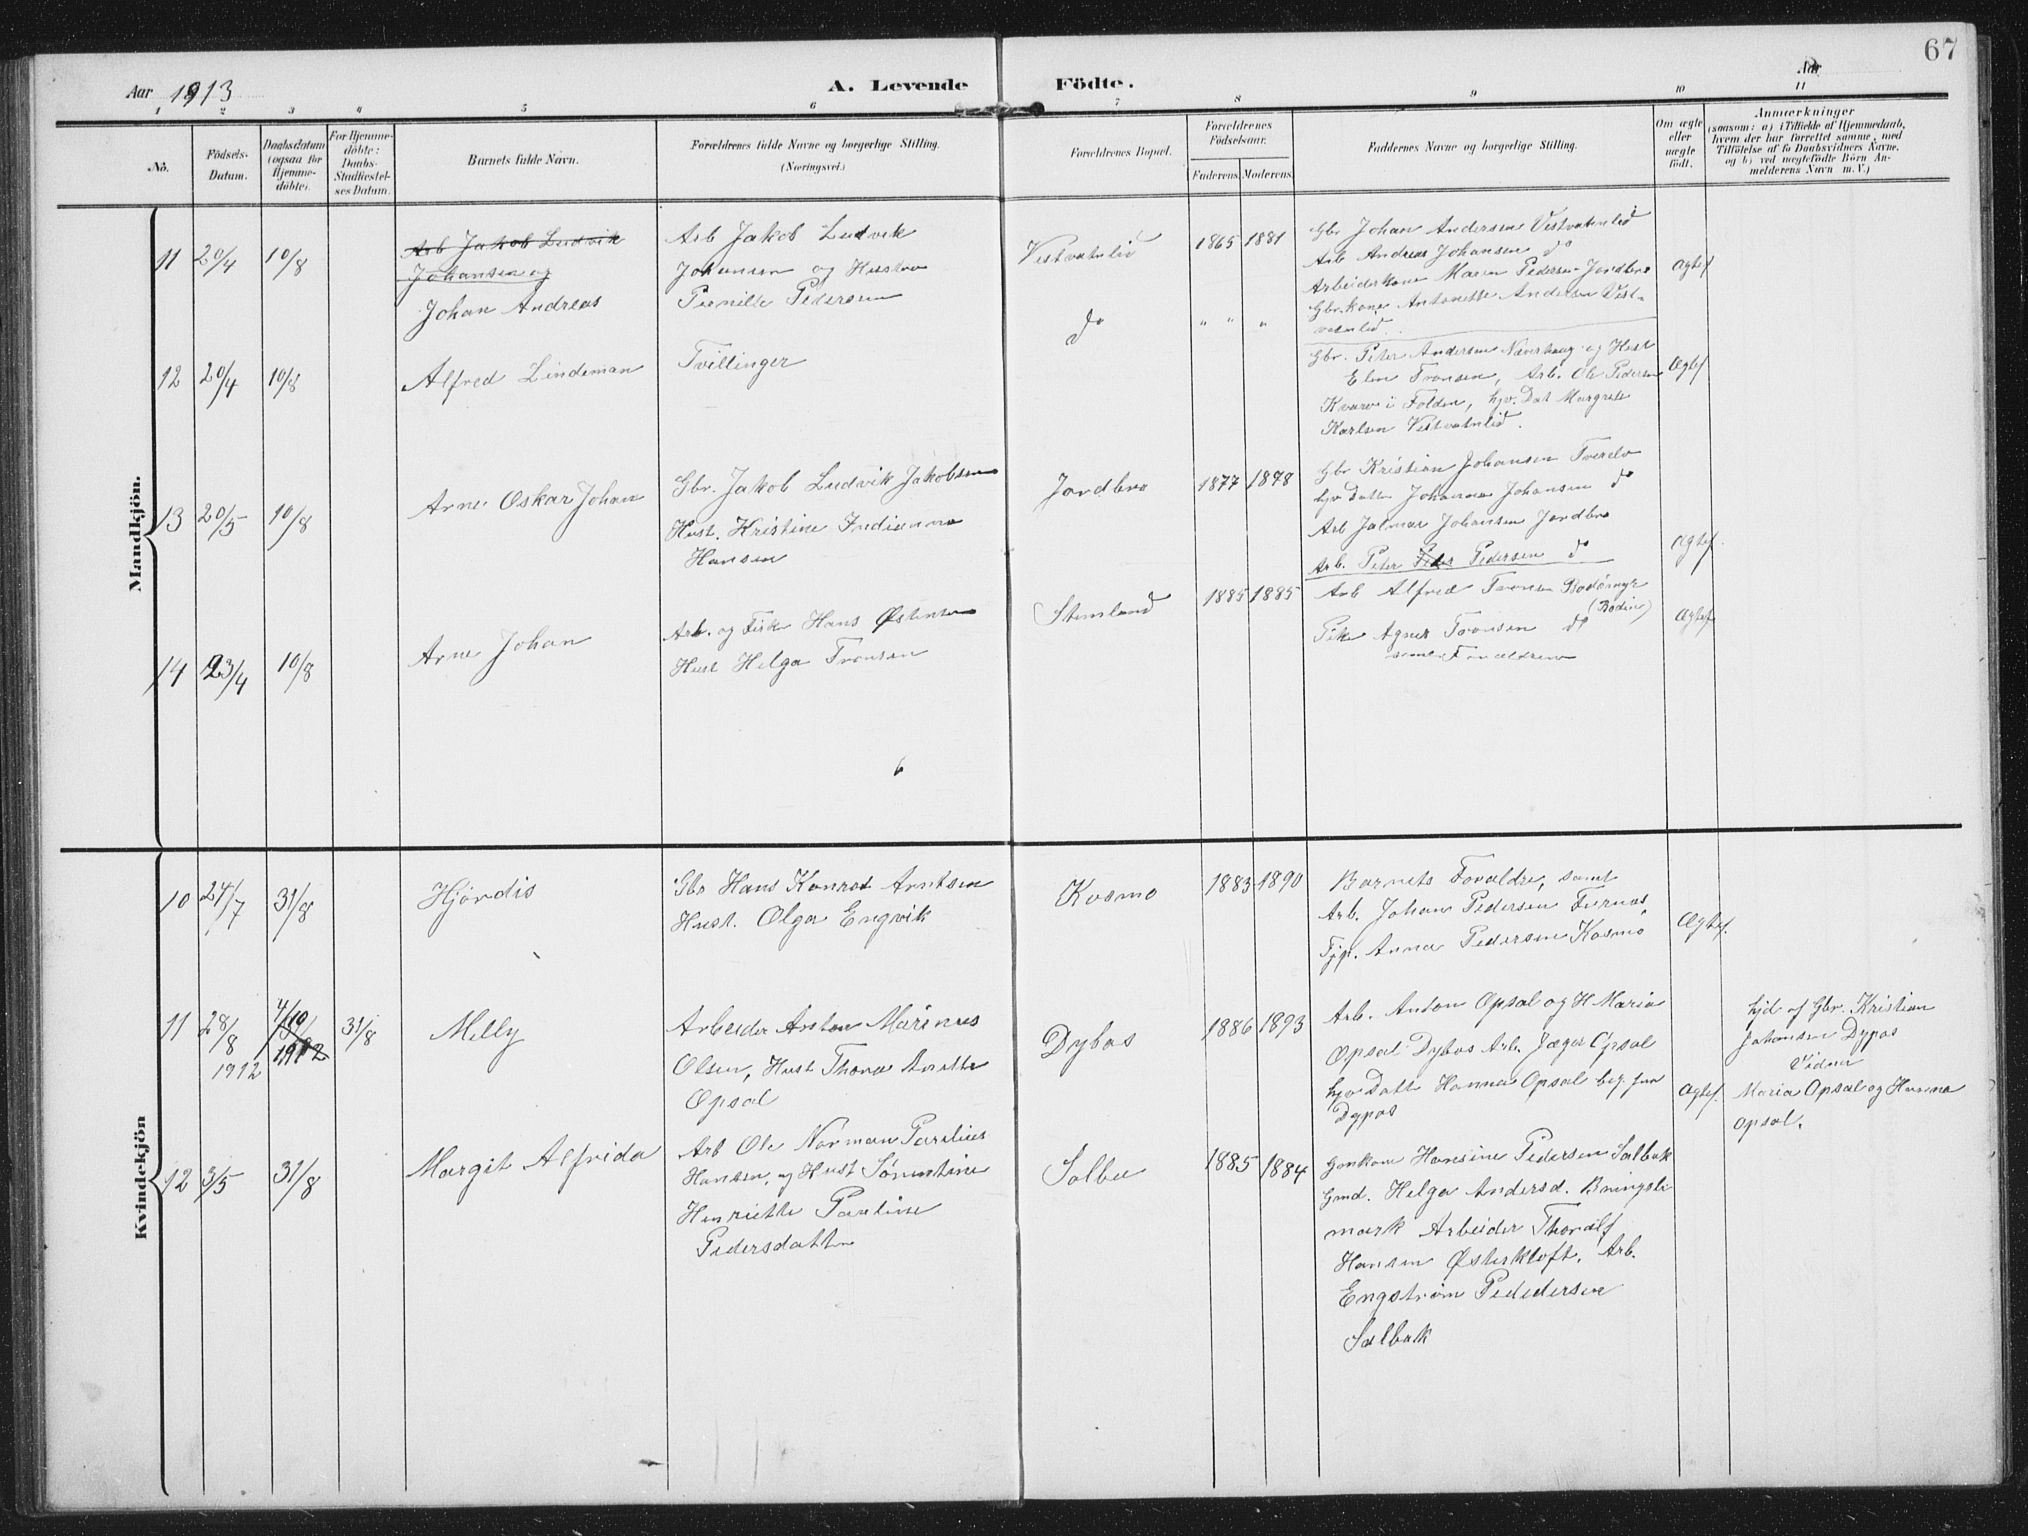 67
Aar 1913
A. Levende Födte.
Aar
1 2 3 4 5 6 7 8 9 10 11
No.
Födsels-
Datum.
Daabsdatum
(ogsaa for
Hjemme-
döbte).
For Hjemme-
döbte:
Daabs-
Stadfæstel-
ses Datum.
Barnets fulde Navn.
Forældrenes fulde Navne og borgerlige Stilling.
(Næringsvei.)
Forældrenes Bopæl.
Forældrenes
Födselsaar.
Faderens. Moderens.
Faddernes Navne og borgerlige Stilling.
Om ægte
eller
uægte
födt.
Anmærkninger
(saasom: a) i Tilfælde af Hjemmedaab,
hvem der har forrettet samme, med
Tilföielse af to Daabsvidners Navne,
og b) ved uægtefödte Börn An-
melderens Navn m. V.)
Mandkjön.
11 20/4 10/8
Arb Jakob Ludvik
Johansen og
Johan Andreas
Arb Jakob Ludvik
Johansen og Hustru
Pernille Pedersen
Vestvatnlid 1865 1881
Gbr Johan Andersen Vestvatnlid
Arb Andreas Johansen do
Arbeiderkone Maren Pedersen Jordbro
Gbr.kone Antonette Andersen Vest-
vatnlid.
Ægtef
12 20/4 10/8
Alfred Lindeman
Tvillinger
do " " "
Gbr. Peter Andersen Næverhaug og Hust
Elen Tronsen, Arb. Ole Pedersen
Kvarv i Folden, hjv. Dat Margrete
Karlsen Vestvatnlid.
Ægtef
13 20/5 10/8
Arne Oskar Johan
Gbr. Jakob Ludvik Jakobsen
Hust. Kristine
Hansen
Jordbro 1877 1878
Gbr Kristian Johansen Tverelv
hjv Datte Johanna Johansen do
Arb Jalmar Johansen Jordbro
Arb. Peter Peder Pedersen do
Ægtef.
14 23/4 10/8
Arne Johan
Arb. og Fisker Hans Østensen
Hust Helga Tronsen
Stenland 1885 1885
Arb Alfred Tronsen Bodømyr
(Bodin)
Pike Agnes Tronsen do
samt Foraeldrene
Ægtef
Kvindekjön
10 24/7 31/8
Hjørdis
Gbr Hans Konrad Arntsen
Hust. Olga Engvik
Kosmo 1883 1890
Barnets Foraldre, samt
Arb. Johan Pedersen Furnes,
Tjp. Anna Pedersen Kosmo
Ægtef.
11 28/8 1912 4/10 1912 31/8
Milly
Arbeider Anton Marinus
Olsen, Hust Thora Anette
Opsal
Dybos 1886 1893
Arb. Anton Opsal og H Maria
Opsal Dybos Arb. Jæger Opsal
hjv Datt Hanna Opsal beg. fra
Dypos
Ægtef.
hjd af Gbr. Kristian
Johansen Dypos
Vidner
Maria Opsal og Hanna
Opsal.
12 3/5 31/8
Margit Alfrida
Arb Ole Norman Parelius
Hansen, og Hust Sørentine
Henriette Pauline
Pedersdatter
Solbu 1885 1884
Hansine Pedersen Salbak
Gmd. Helga Andersd. Bringsli
mark Arbeider Thoralf
Hansen Østerkløft, Arb.
Engstrøm Pededersen
Salbak